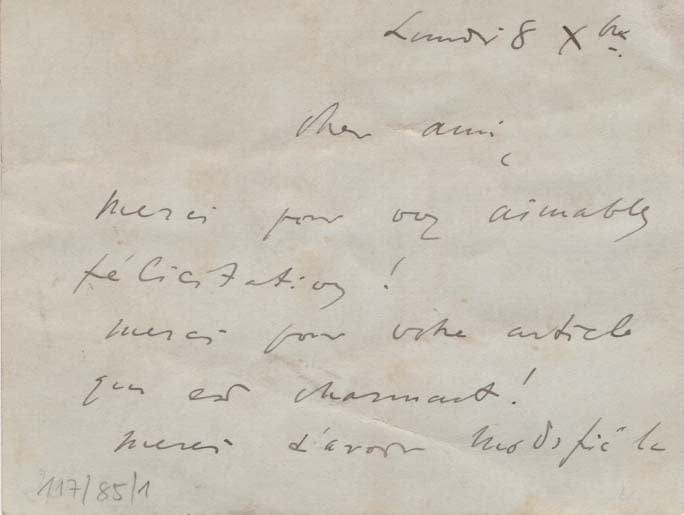 Lundi 8 Xbre
Cher ami,
Merci pour vos aimables
félicitations !
Merci pour votre article
qui est charmant !
Merci d'avoir modifié la
117/85/1